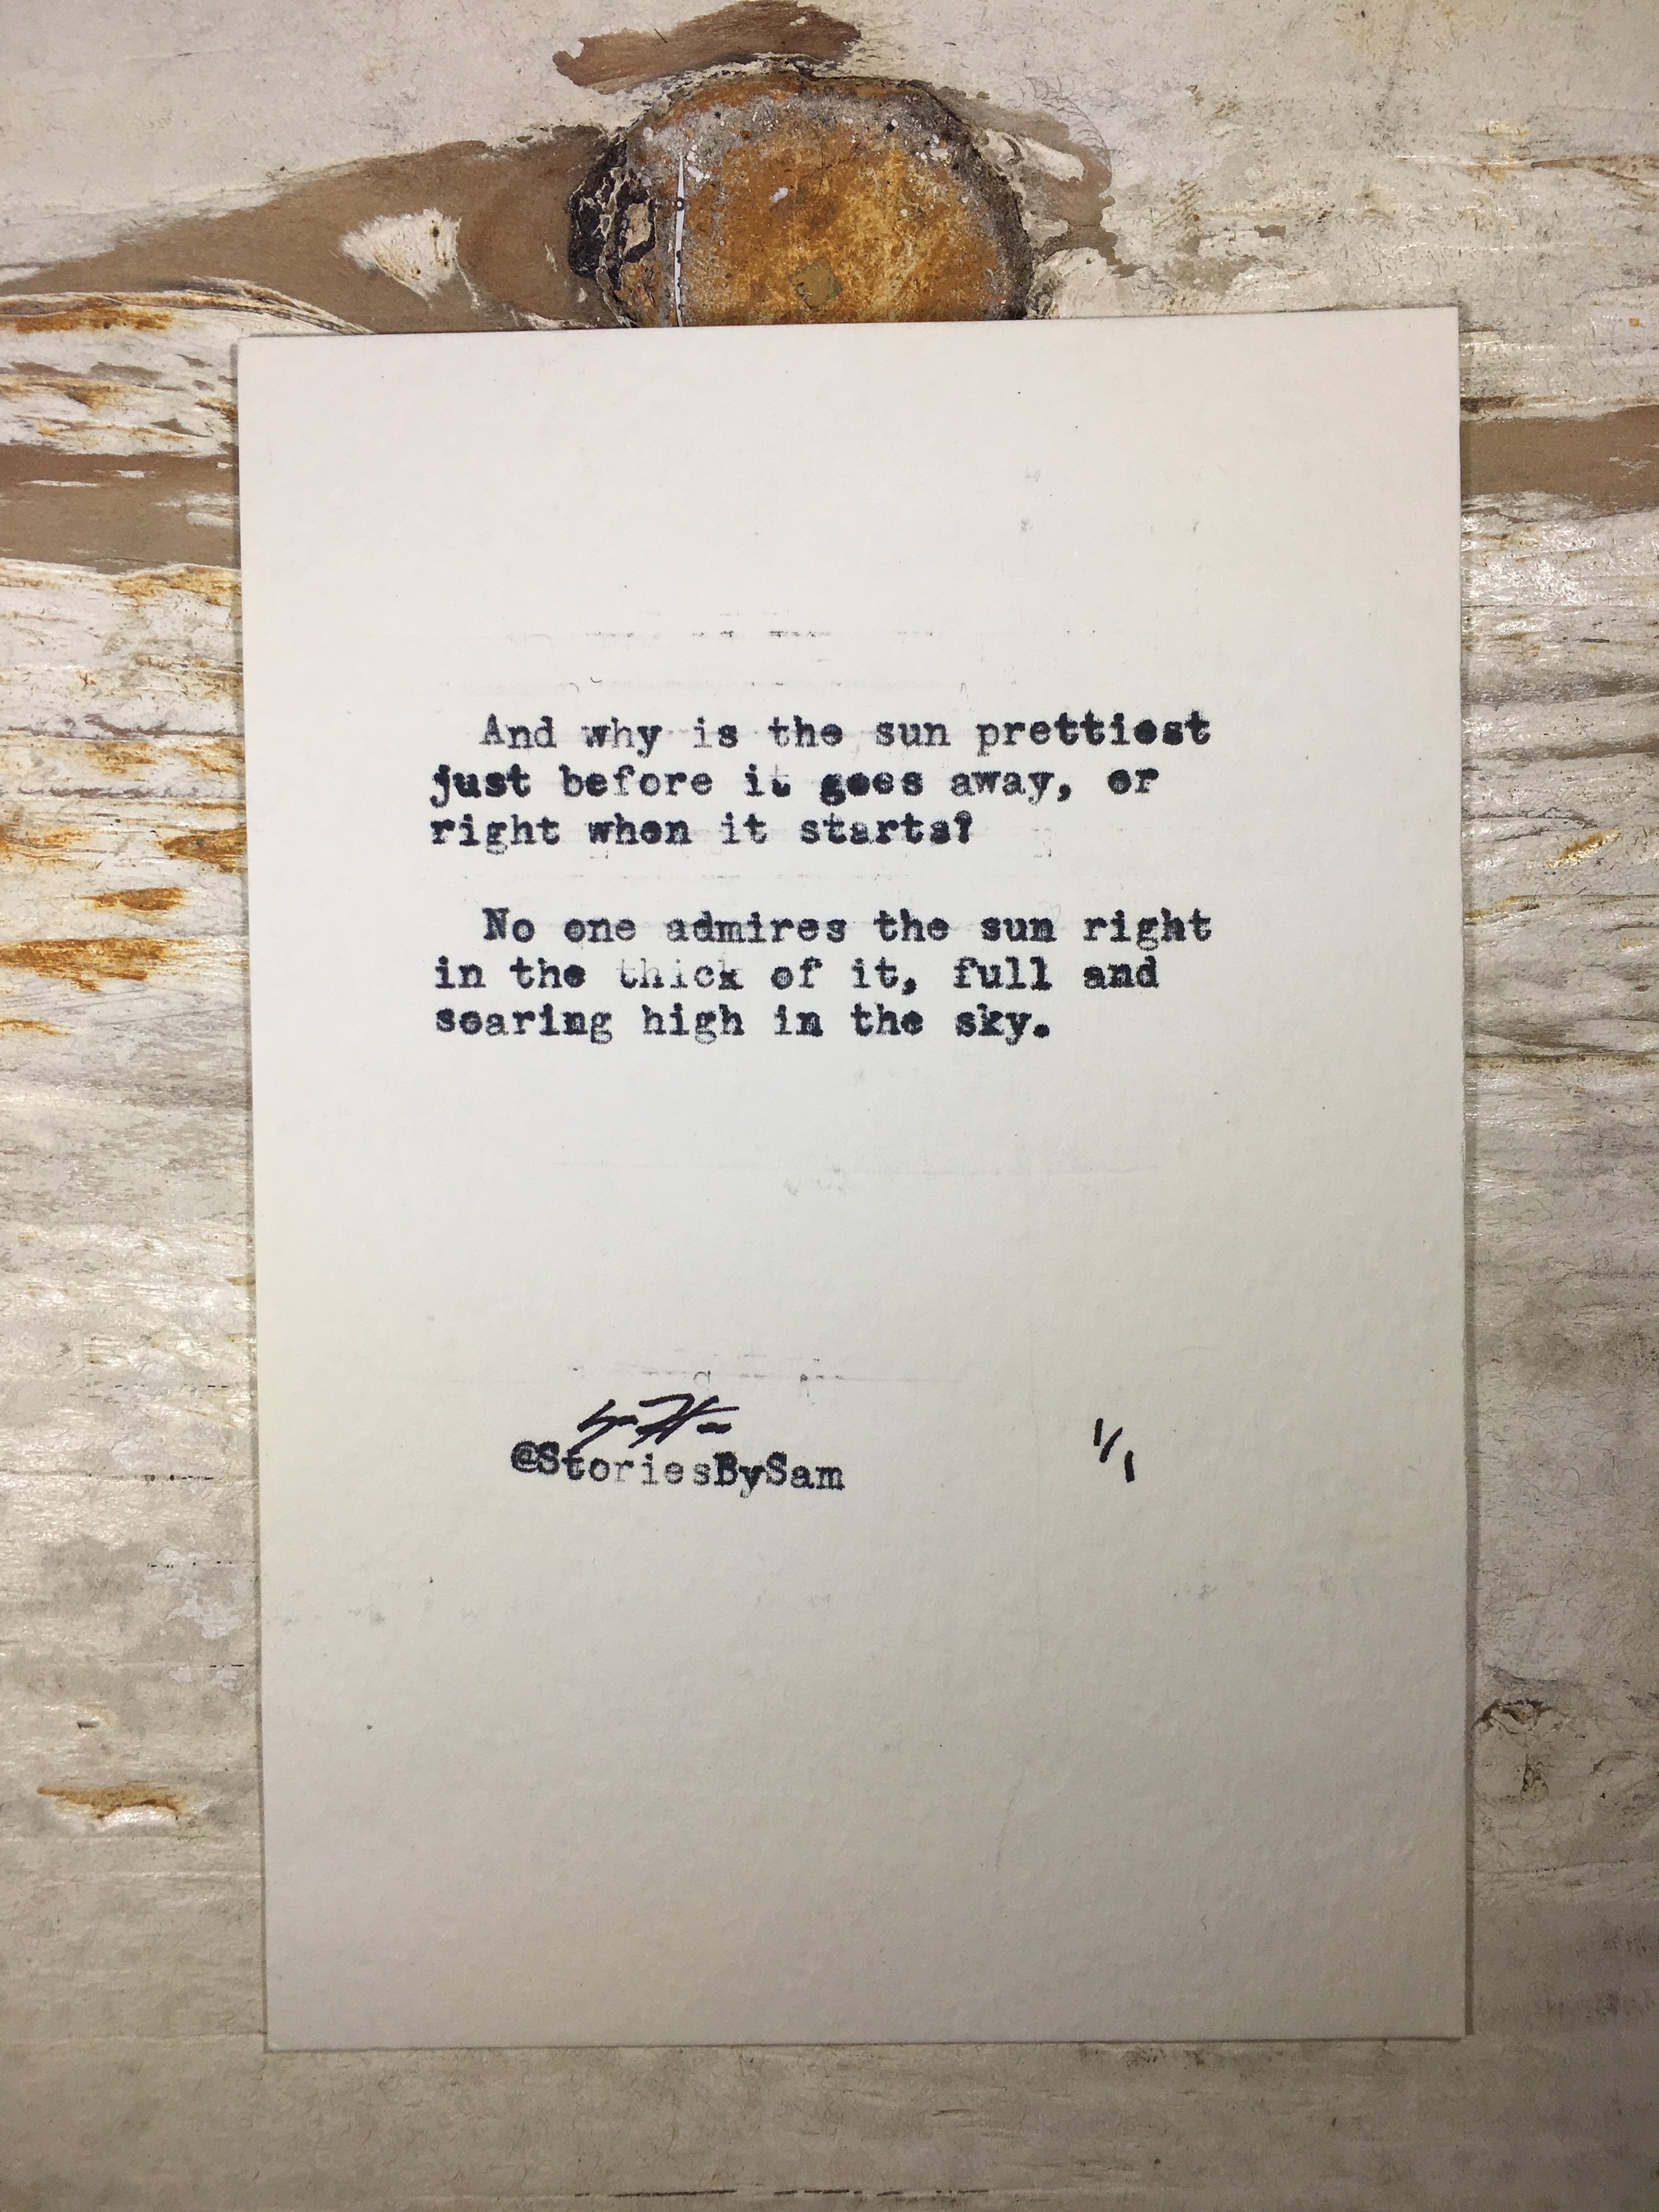 And why is the sun prettiest
just before it goes away, or
right when it starts?
No one admires the sun right
in the thick of it, full and
soaring high in the sky.
@StoriesBySam
1/1